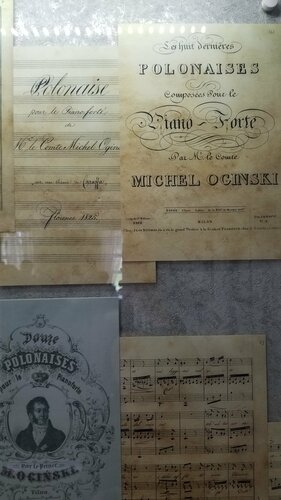 Polonaise
pour le Pianoforté
de
Mr. le Comte Michel Ogins
sur un thème de Caraffa
Florence 1825.
Les huit dernières
POLONAISES
Composées Pour le
Piano-Forte
Par Mr. le Comte
MICHEL OGINSKI
MILAN
Douze
POLONAISES
pour le Pianoforte
Par le Prince
M. OGINSKI.